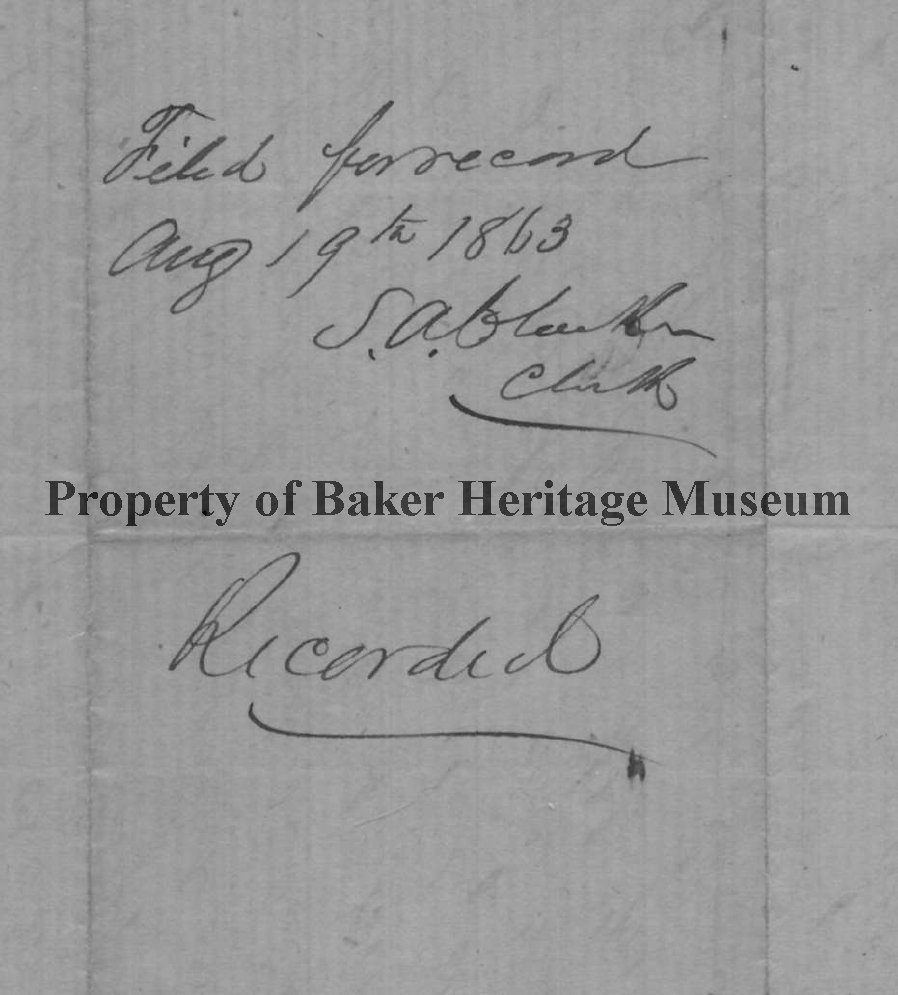 Filed for record
Aug 19th 1863
S. A. Clarke
Clerk
Property of Baker Heritage Museum
Recorded